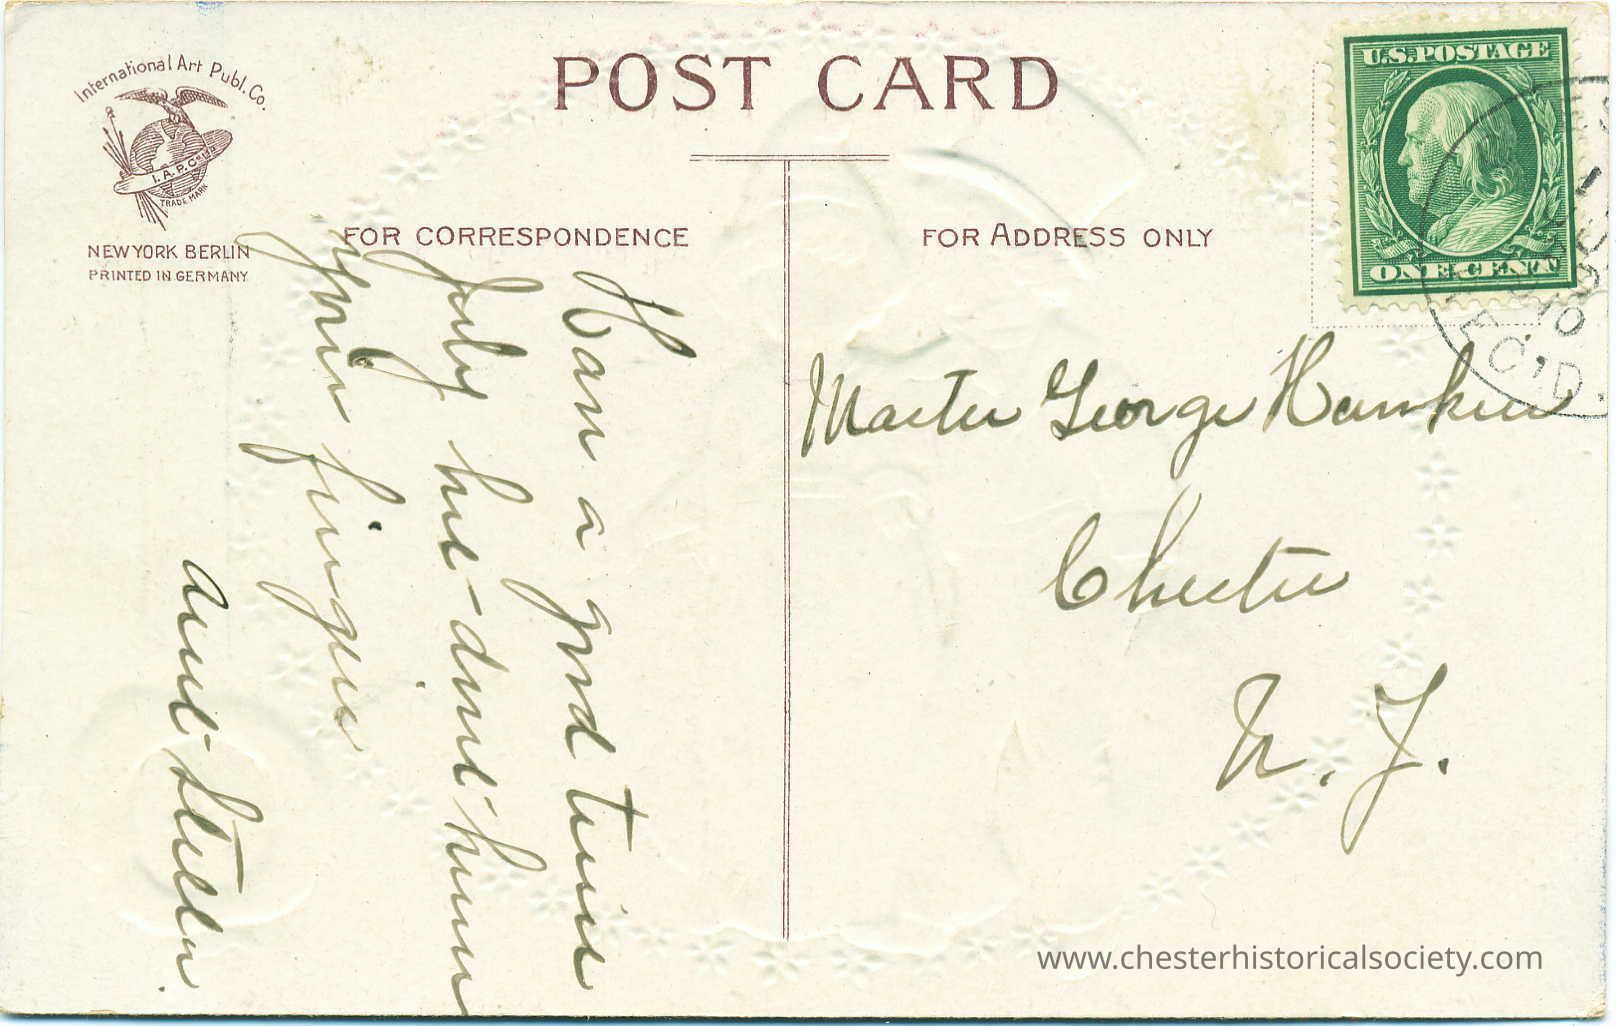 International Art Publ. Co.
I. A. P. Co.
TRADE MARK
NEW YORK BERLIN
PRINTED IN GERMANY
POST CARD
FOR CORRESPONDENCE
FOR ADDRESS ONLY
U.S. POSTAGE
ONE CENT
REC'D.
Have a good time
July but don't burn
your fingers
Aunt Stella.
Master George
Chester
N. J.
www.chesterhistoricalsociety.com